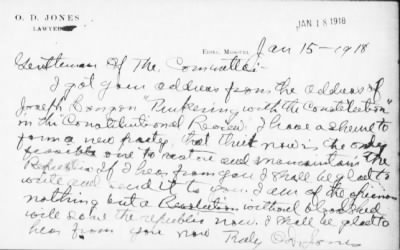 O. D. JONES
LAWYER
JAN 18 1918
EDINA, MISSOURI,
Jan 15 - 1918
Gentlemen Of The Committee:-
I got your address from the address of
Joseph Cannon "Tinkering with the Constitution"
in the Constitutional Review. I have a scheme to
form a new party, that that now is the only
possible one to restore and maintain the
Republic. if I hear from you I shall be glad to
write and send it to you. I am of the opinion
nothing but a Revolution without bloodshed
will save the republic now. I shall be glad to
hear from you now Truly O.D. Jones